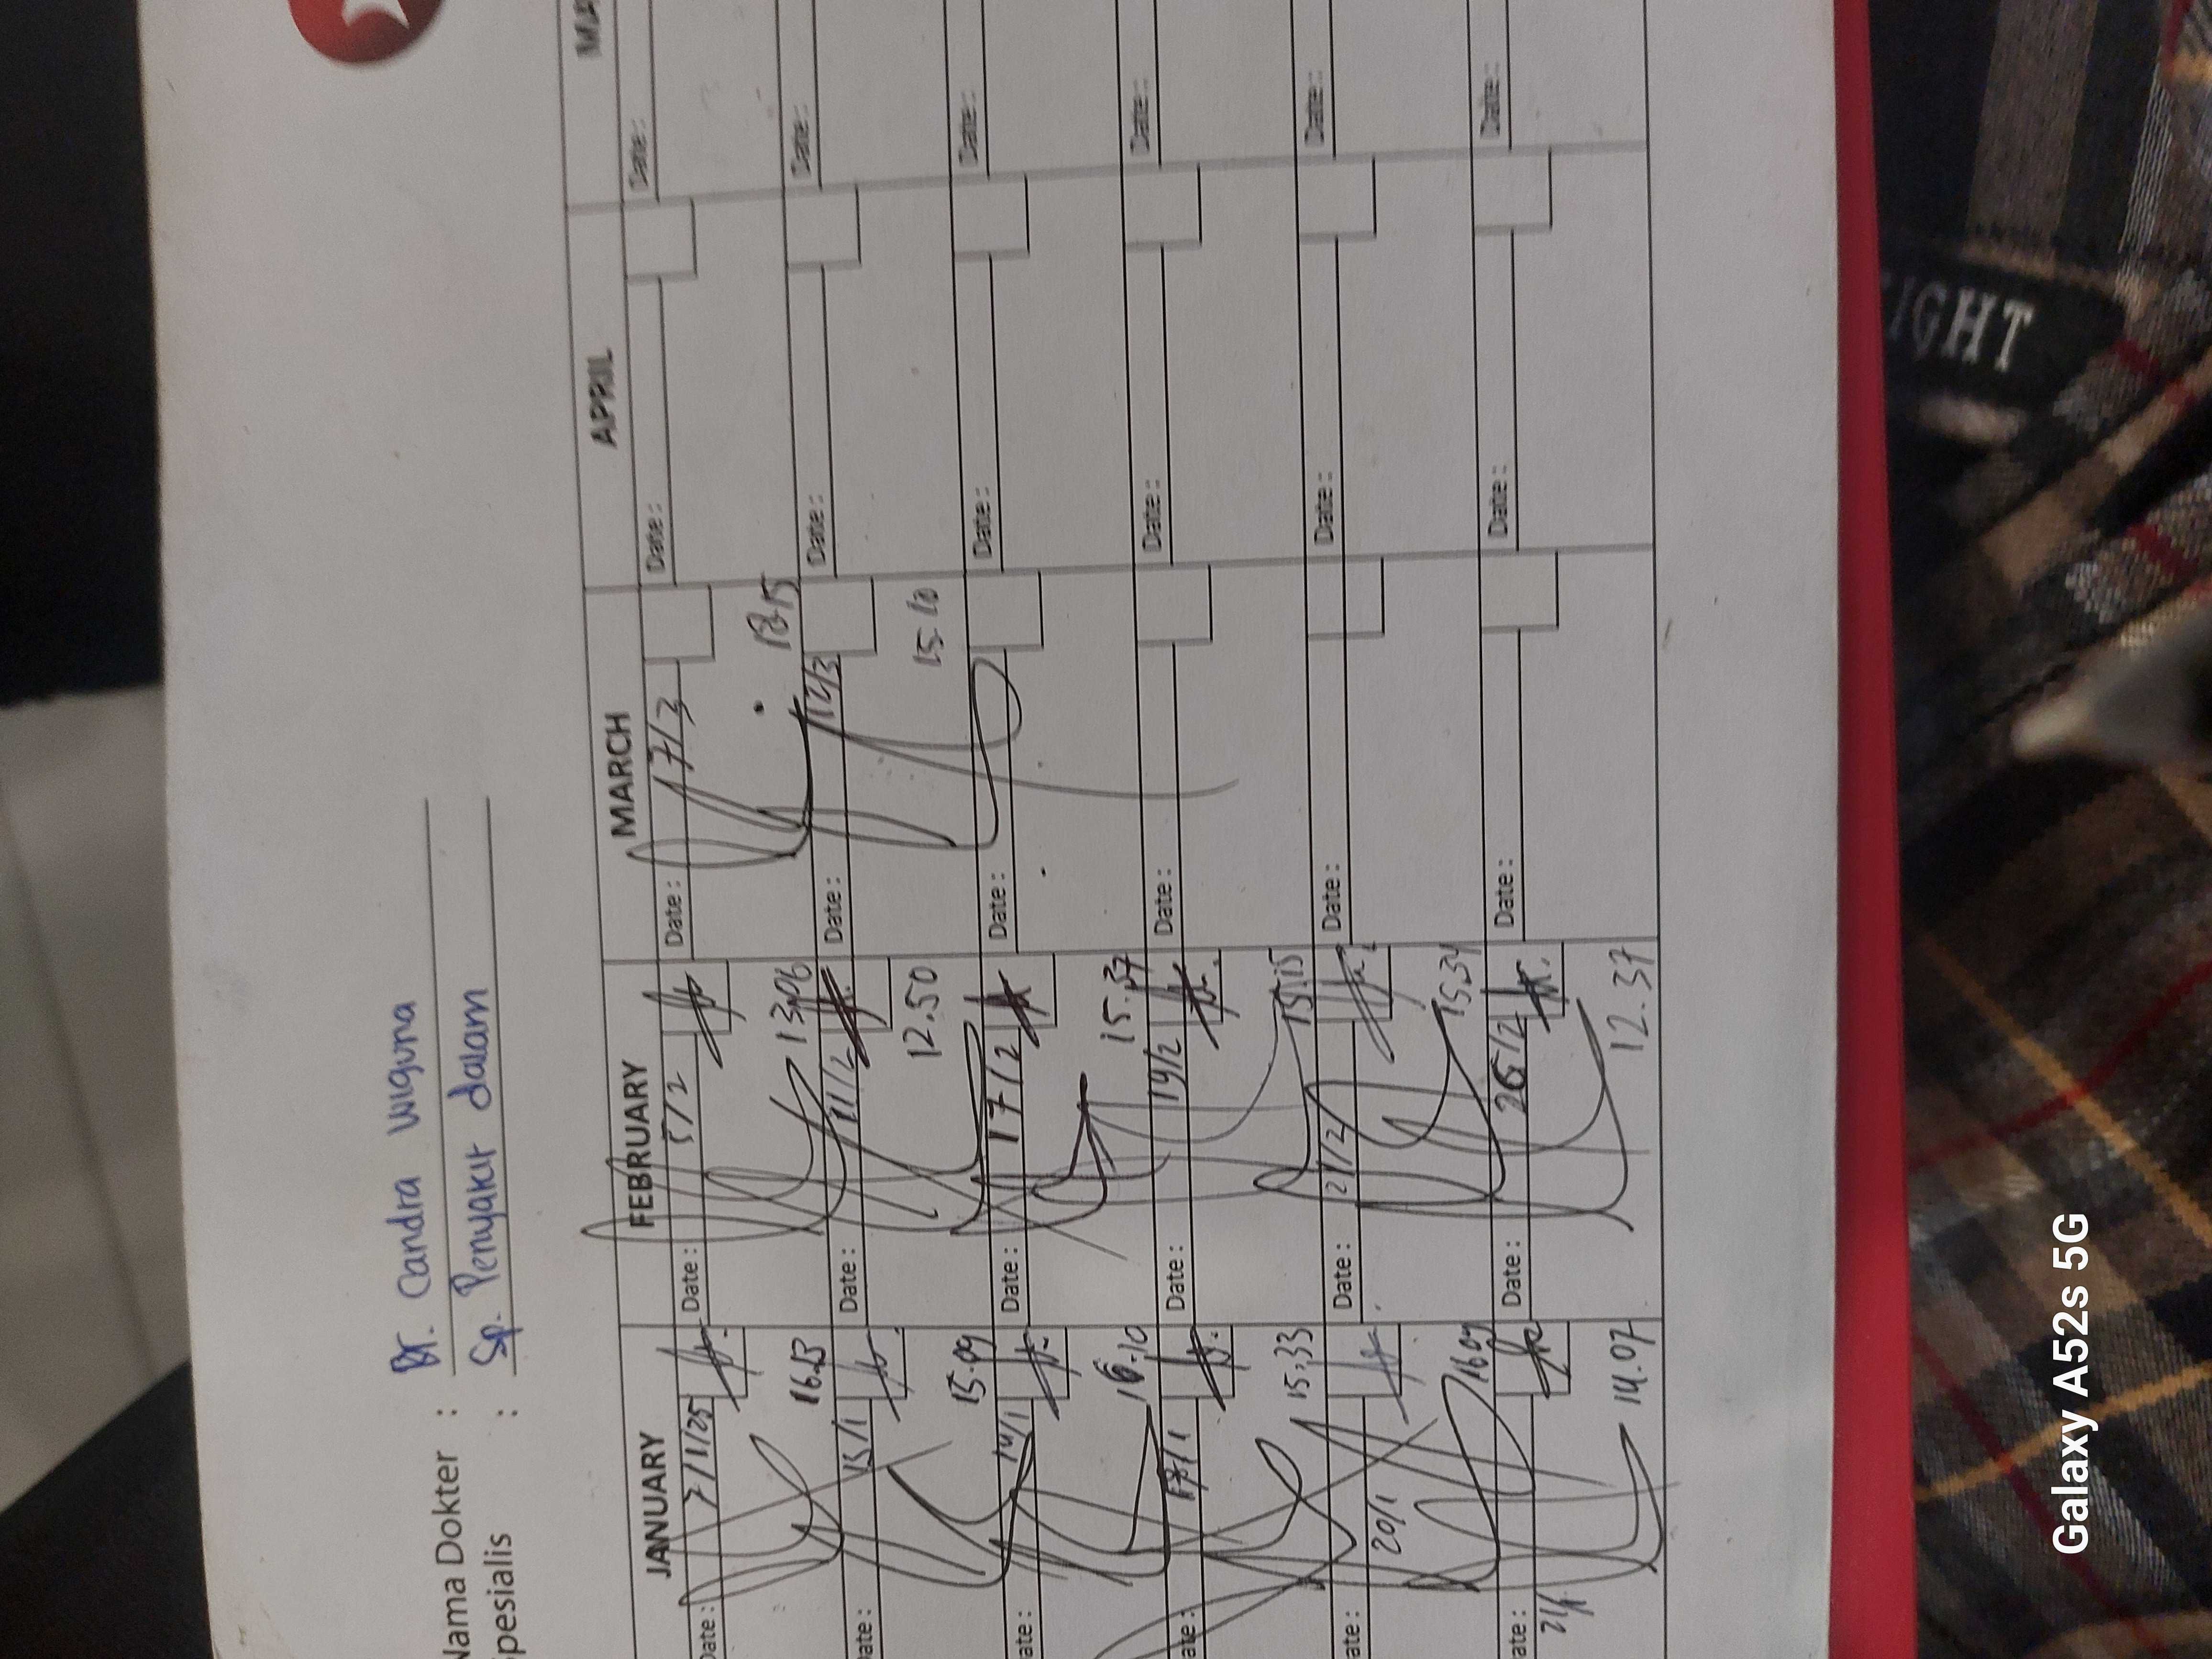 Nama Dokter : Dr. Candra Wiguna
Spesialis : Sp. Penyakit dalam
JANUARY FEBRUARY MARCH APRIL MA
Date: 7/1/25 Date: 5/2 Date: 7/3 Date: Date:
16.23 13.06 18.15
Date: 15/1 Date: 11/2 Date: 12/3 Date: Date:
15.09 12.50 15.10
Date: 14/1 Date: 17/2 Date: Date: Date:
16.10 15.37
Date: 17/1 Date: 19/2 Date: Date: Date:
15.33 15.15
Date: 20/1 Date: 21/2 Date: Date: Date:
16.09 15.34
Date: 21/1 Date: 26/2 Date: Date: Date:
14.07 12.37
IGHT
Galaxy A52s 5G